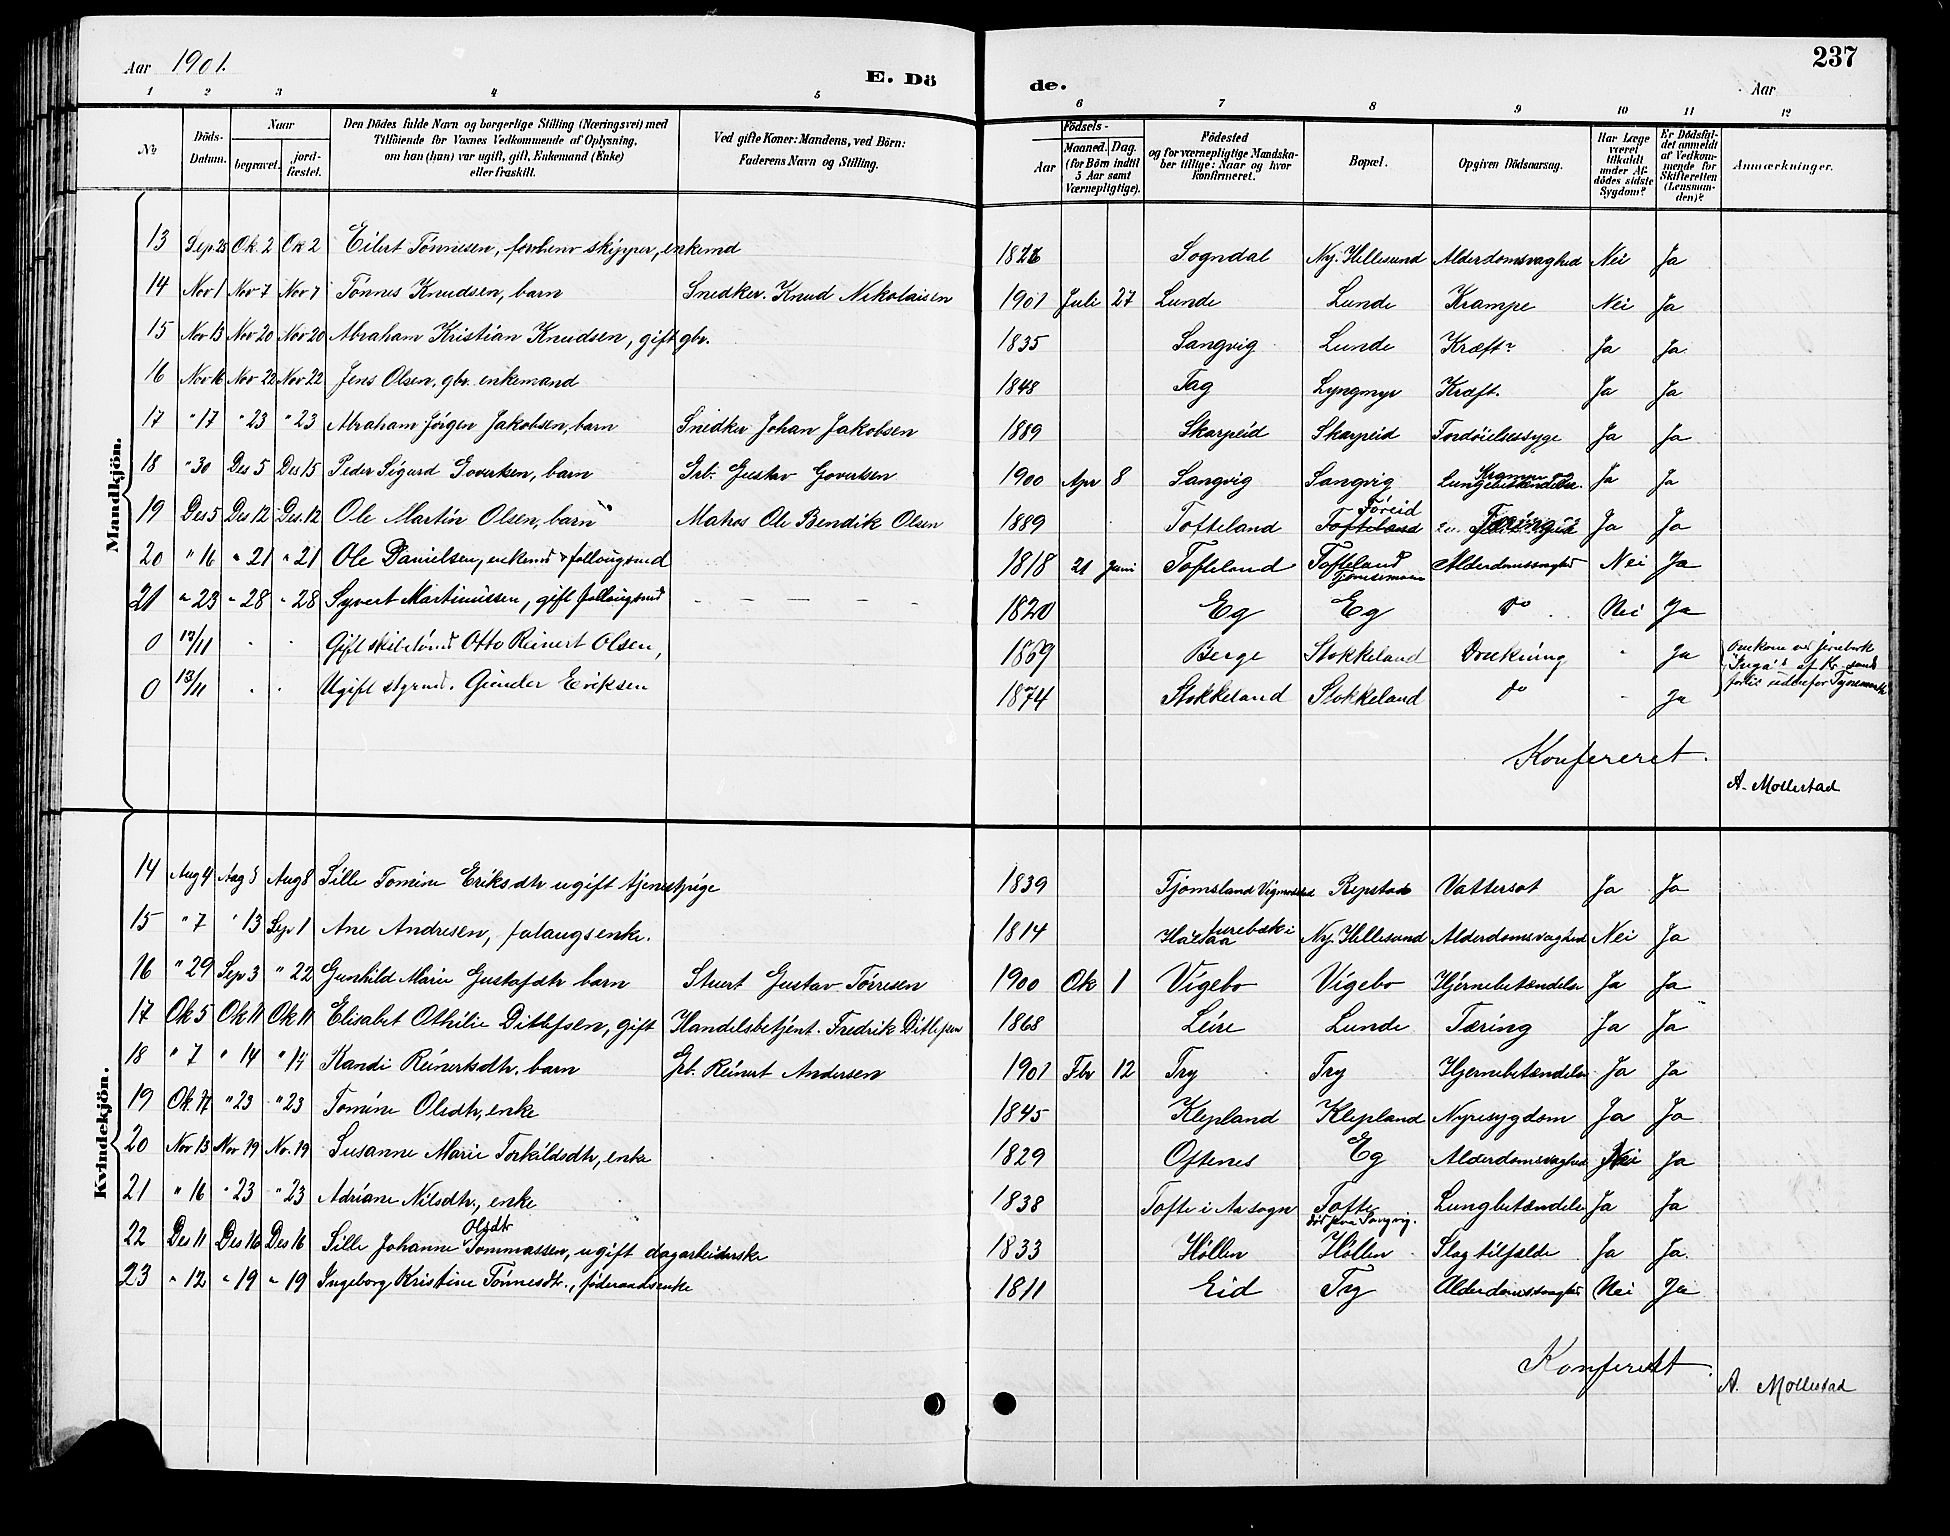 Aar 1901.
E. Dö
de.
237
Aar
1 2 3 4 5 6 7 8 9 10 11 12
№
Döds-Datum.
Naar
begravet.
jord-fæstet.
Den Dödes fulde Navn og borgerlige Stilling (Næringsvei) med Tilföiende for Voxnes Vedkommende af Oplysning, om han (hun) var ugift, gift, Enkemand (Enke) eller fraskilt.
Ved gifte Koner: Mandens, ved Börn: Faderens Navn og Stilling.
Födsels-
Aar
Maaned. Dag. (for Börn indtil 5 Aar samt Værnepligtige).
Födested og for værnepligtige Mandskaber tillige: Naar og hvor konfirmeret.
Bopæl.
Opgiven Dödsaarsag.
Har Læge været tilkaldt under Afdödes sidste Sygdom?
Er Dödsfaldet anmeldt af Vedkommende for Skifteretten (Lensmanden)?
Anmærkninger.
Mandkjön.
13 Sep 25 Ok. 2 Ok 2 Eilert Tönnesen, forhenv skipper, enkemd 1826 Sogndal Ny. Hellesund Alderdomsvaghed Nei Ja
14 Nov 1 Nov 7 Nov 7 Tönnes Knudsen, barn Snedker. Knud Nikolaisen 1901 Juli 27 Lunde Lunde Krampe Nei Ja
15 Nov 13 Nov 20 Nov 20 Abraham Kristian Knudsen, gift gbr. 1835 Sangvig Lunde Kræft? Ja Ja
16 Nov 16 Nov 22 Nov 22 Jens Olsen, gbr. enkemand 1848 Tag Lyngmyr Kræft. Ja Ja
17 " 17 " 23 " 23 Abraham Jörgen Jakobsen, barn Snedker Johan Jakobsen 1889 Skarpeid Skarpeid Fordöielsessyge Ja Ja
18 " 30 Des 5 Des 15 Peder Sigurd Govertsen, barn Grb. Gustav Govertsen 1900 Apr 8 Sangvig Sangvig Lungebetændelse. Ja Ja
19 Des 5 Des 12 Des. 12 Ole Martin Olsen, barn Matros Ole Bendik Olsen 1889 Tofteland Tofteland Föreid Ja Ja
20 " 16 " 21 " 21 Ole Danielsen, enkemd 1818 21 Juni Tofteland Tofteland Alderdomssvaghed Nei Ja
21 " 23 " 28 " 28 Syvert Martinussen, gift 1820 Eg Eg do Nei Ja
0 13/11 Gift Otto Reinert Olsen, 1869 Berge Stokkeland Drukning Ja
0 13/11 Ugift styrmd. Gunder Eriksen 1874 Stokkeland Stokkeland do Ja
Omkom ved
af Kr. sand
Konfereret.
A. Mollestad
Kvindekjön.
14 Aug 4 Aug 8 Aug 8 Sille Tomine Eriksdtr ugift tjenestpige 1839 Tjomsland Repstad Vattersot Ja Ja
15 " 7 " 13 Sep 1 Ane Andresen, enke. 1814 Ny. Hellesund Alderdomsvaghed Nei Ja
16 " 29 Sep 3 " 22 Gunhild Marie Gustafdtr barn Stuert Gustav Törresen 1900 Ok 1 Vigebo Vigebo Hjernebetændelse Ja Ja
17 Ok 5 Ok 11 Ok 11 Elisabet Othilie Ditlefsen, gift Handelsbetjent. Fredrik Ditlefsen 1868 Leire Lunde Tæring Ja Ja
18 " 7 " 14 " 14 Kandi Reinertsdtr. barn Grb. Reinert Andersen 1901 Fbr 12 Try Try Hjernebetændelse Ja Ja
19 Ok. 17 " 23 " 23 Tomine Olsdtr, enke 1845 Klepland Klepland Nyresygdom Ja Ja
20 Nov 13 Nov 19 Nov. 19 Susanne Marie Torkildsdtr, enke 1829 Oftenes Eg Alderdomsvaghed Nei Ja
21 " 16 " 23 " 23 Adriane Nilsdtr., enke 1838 Tofte i Aa sogn Tofte Lungbetændelse Ja Ja
22 Des 11 Des 16 Des 16 Sille Johanne Olsdtr Tommassen, ugift dagarbeiderske 1833 Höllen Höllen Slagtilfælde Ja Ja.
23 " 12 " 19 " 19 Ingeborg Kristine Tönnesdtr., föderaadsenke 1811 Eid Try Alderdomssvaghed Nei Ja
Konfereret.
A. Mollestad